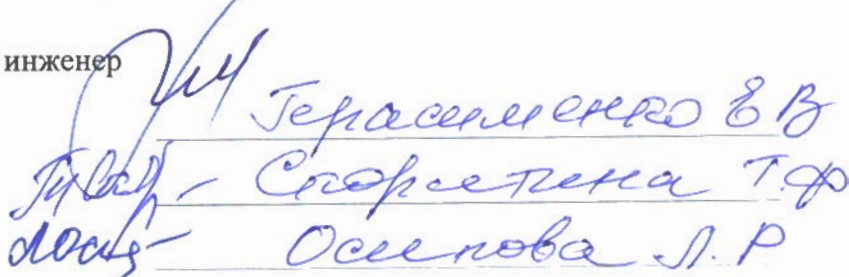 инженер
Герасименко Е В
Скоркина Т.Ф
Осипова Л.Р